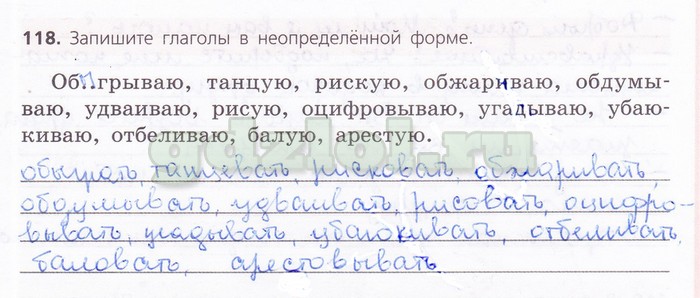 118. Запишите глаголы в неопределённой форме.
Обыгрываю, танцую, рискую, обжариваю, обдумы-
ваю, удваиваю, рисую, оцифровываю, угадываю, убаю-
киваю, отбеливаю, балую, арестую.
gdzlol.ru
обыграть, танцевать, рисковать, обжаривать,
обдумывать, удваивать, рисовать, оцифро-
вывать, угадывать, убаюкивать, отбеливать,
баловать, арестовывать.